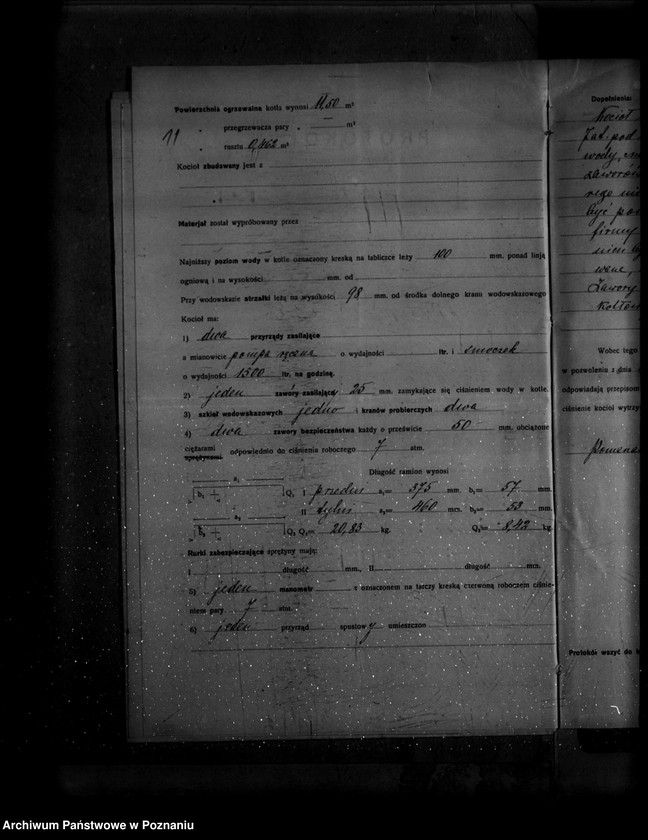 Powierzchnia ogrzewalna kotła wynosi 11,50 m²
11 „ przegrzewacza pary „ — m²
„ rusztu 0,462 m²
Kocioł zbudowany jest z
Materjał został wypróbowany przez
Najniższy poziom wody w kotle oznaczony kreską na tabliczce leży 100 mm. ponad linją
ogniową i na wysokości mm. od
Przy wodowskazie strzałki leżą na wysokości 98 mm. od środka dolnego kranu wodowskazowego
Kocioł ma:
1) dwa przyrządy zasilające
a mianowicie pompa ręczna o wydajności ltr. i smoczek
o wydajności 1500 ltr. na godzinę.
2) jeden zawory zasilające 25 mm. zamykające się ciśnieniem wody w kotle.
3) szkieł wodowskazowych jedno i kranów probierczych dwa
4) dwa zawory bezpieczeństwa każdy o prześwicie 50 mm. obciążone
ciężarami
sprężynami odpowiednio do ciśnienia roboczego 7 atm.
Długość ramion wynosi
a₁
b₁ Q₁ I przedni a₁= 375 mm. b₁= 57 mm.
II tylni a₂= 460 mm. b₂= 53 mm.
a₂
b₂ Q₂ Q₁= 20,83 kg. Q₂= 8,42 kg.
Rurki zabezpieczające sprężyny mają:
I długość mm., II długość mm.
5) jeden manometr z oznaczonem na tarczy kreską czerwoną roboczem ciśnie-
niem pary 7 atm.
6) jeden przyrząd spustowy umieszczon
Dopełnienia:
Kocioł
pod
wody,
być
firmy
Zawory
Wobec tego
w pozwoleniu z dnia
odpowiadają przepisom
ciśnienie kocioł wytrzy
Protokół wszyć do k
Archiwum Państwowe w Poznaniu